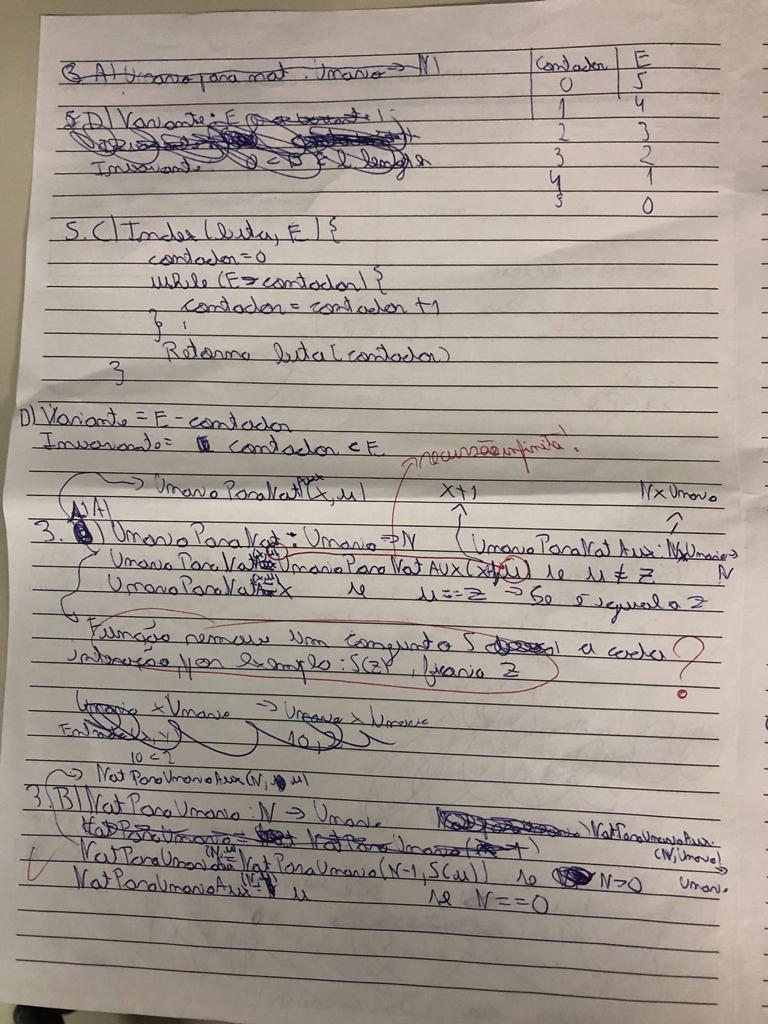 3 A) Unario para nat. Unario → N)
Contador E
0 5
1 4
2 3
3 2
4 1
5 0
5 D) Variante: E
Invariante
5. C) Index (lista, E) {
contador = 0
while (E > contador) {
contador = contador + 1
}
Retorna lista [contador)
}
D) Variante = E - contador
Invariante = contador < E
recursão infinita!
Unario Para Nat Aux (x, u) x+1 N x Unario
A) A)
3. Unario Para Nat : Unario → N Unario Para Nat Aux : N x Unario → N
Unario Para Nat Unario Para Nat AUX (x+1, u) se u ≠ Z
Unario Para Nat x se u == Z → Se é igual a Z
Função remove um conjunto S a cada ?
interação, por exemplo: S(Z), ficaria Z
Unario x Unario → Unario x Unario
10, 2
10 < 2
→ Nat Para Unario Aux (N, u)
3. B) Nat Para Unario : N → Unario Nat Para Unario Aux:
(N, Unario) → Unario
Nat Para Unario
Nat Para Unario (N, u) = Nat Para Unario (N-1, S(u)) se N > 0
Nat Para Unario Aux = u se N == 0